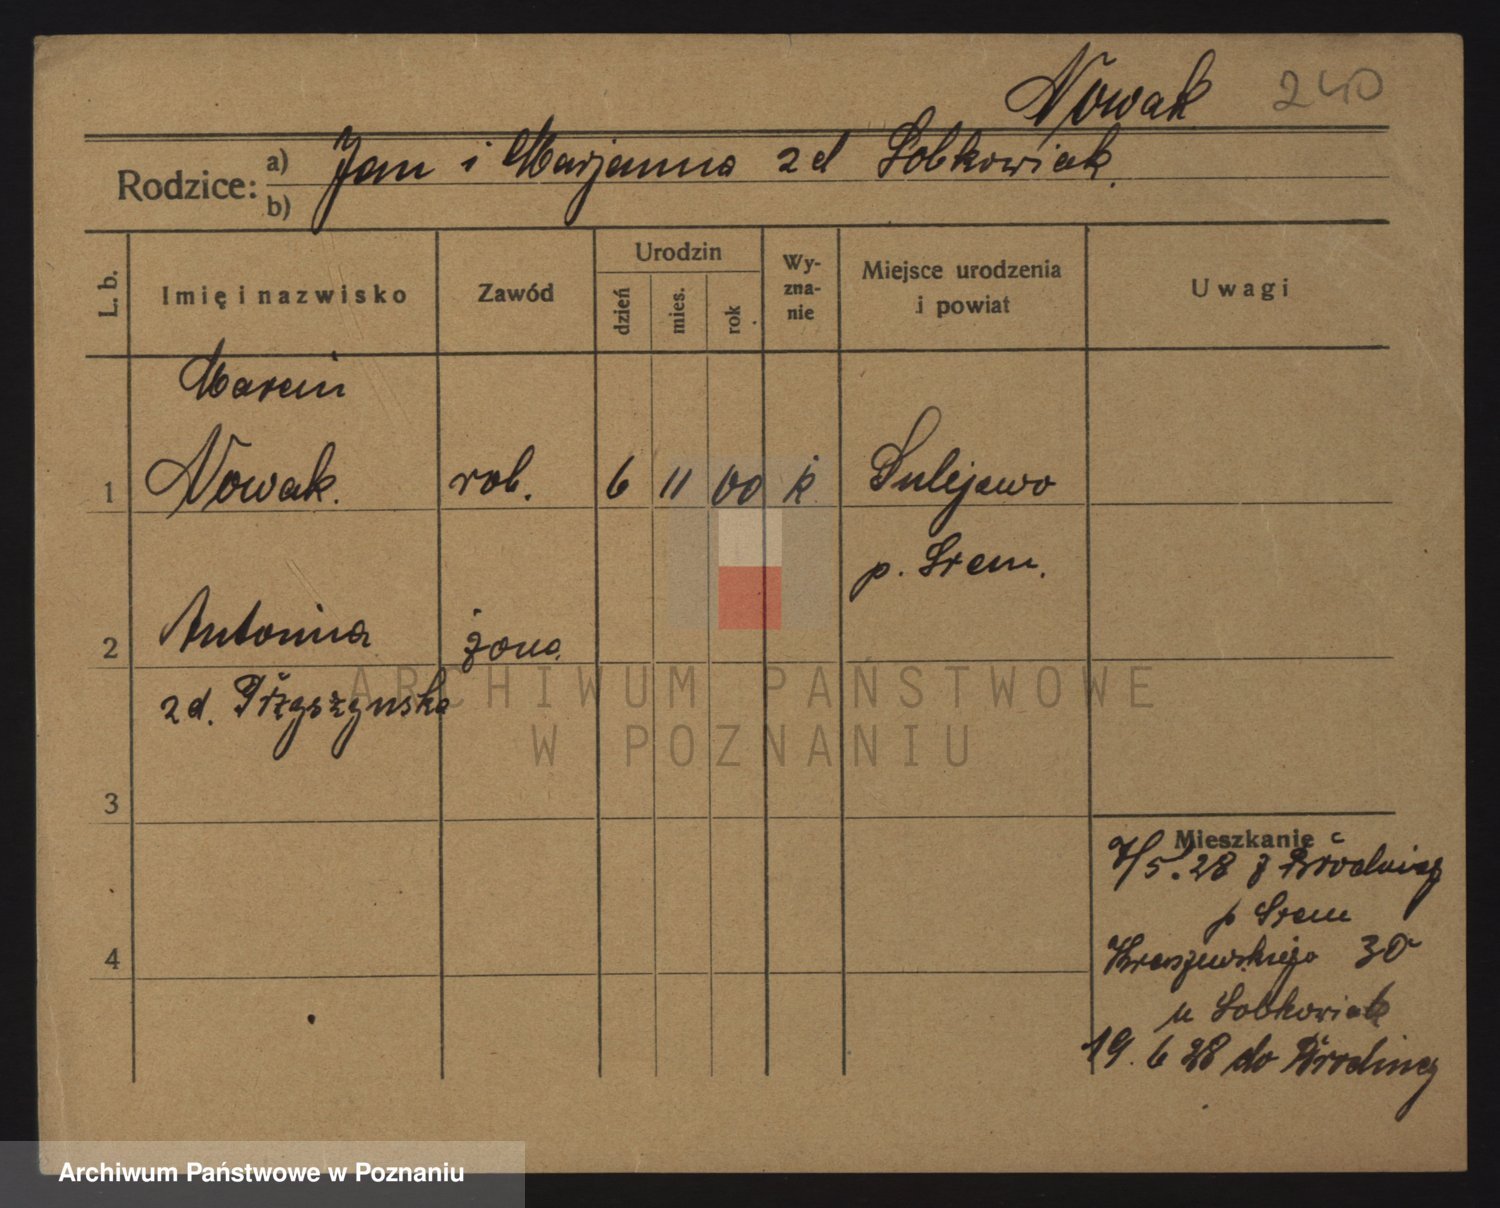 Nowak 240
Rodzice: a) Jan i Marjanna zd Sobkowiak.
b)
L. b. Imię i nazwisko Zawód Urodzin dzień mies. rok Wyznanie Miejsce urodzenia i powiat Uwagi
Marcin
1 Nowak. rob. 6 11 00 k Sulejewo
p. Srem.
2 Antonina żona
zd.
3
Mieszkanie
7/5.28 z Brodnicy
p Srem
4 Kraszewskiego 30
u Sobkowiak
19. 6 28 do Brodnicy
ARCHIWUM PAŃSTWOWE
W POZNANIU
Archiwum Państwowe w Poznaniu